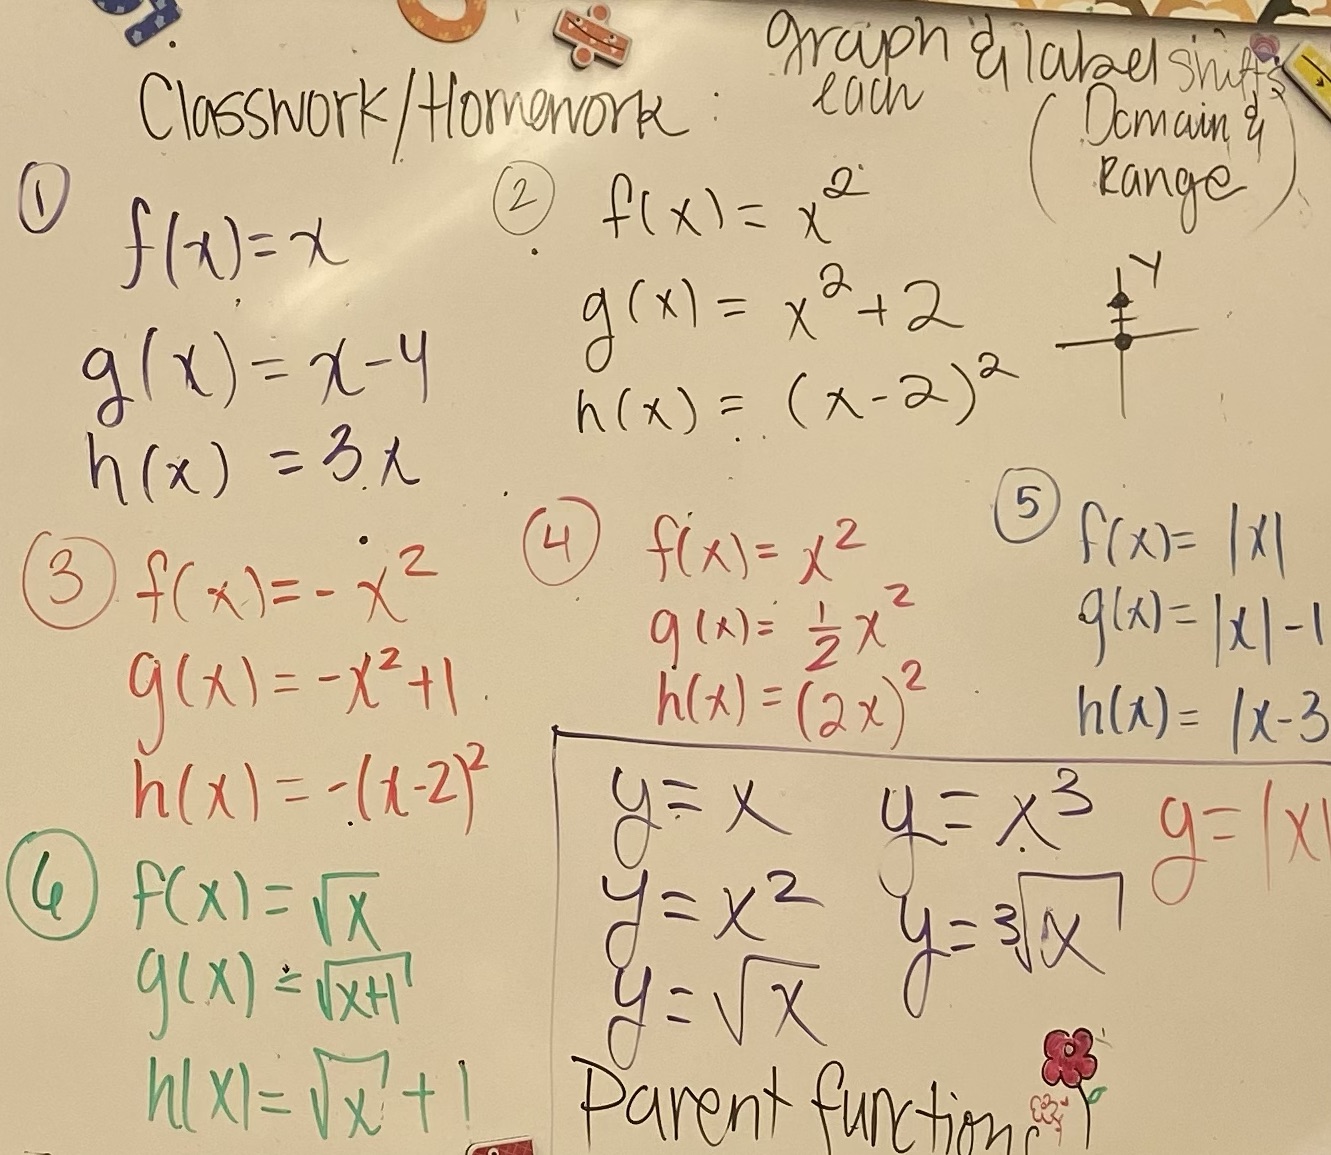 Classwork/Homework:
graph & label shifts
each
(Domain &
Range)
①
f(x)=x
g(x)=x-4
h(x)=3x
②
f(x)=x²
g(x)=x²+2
h(x)=(x-2)²
y
③
f(x)=-x²
g(x)=-x²+1
h(x)=-(x-2)²
④
f(x)=x²
g(x)=½x²
h(x)=(2x)²
⑤
f(x)=|x|
g(x)=|x|-1
h(x)=|x-3
⑥
f(x)=√x
g(x)=√(x+1)
h(x)=√x+1
y=x
y=x²
y=√x
y=x³
y=³√x
y=|x|
Parent functions